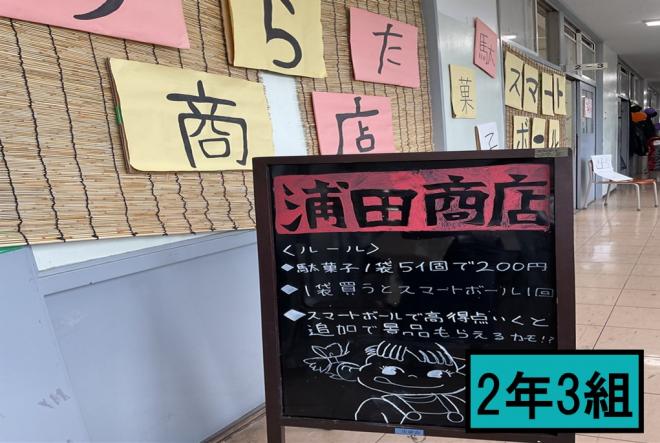 うらた
商店
駄菓子
スマート
ボール
浦田商店
<ルール>
◆駄菓子1袋5個で200円
◆1袋買うとスマートボール1回
◆スマートボールで高得点いくと
追加で景品もらえるカモ!?
2年3組